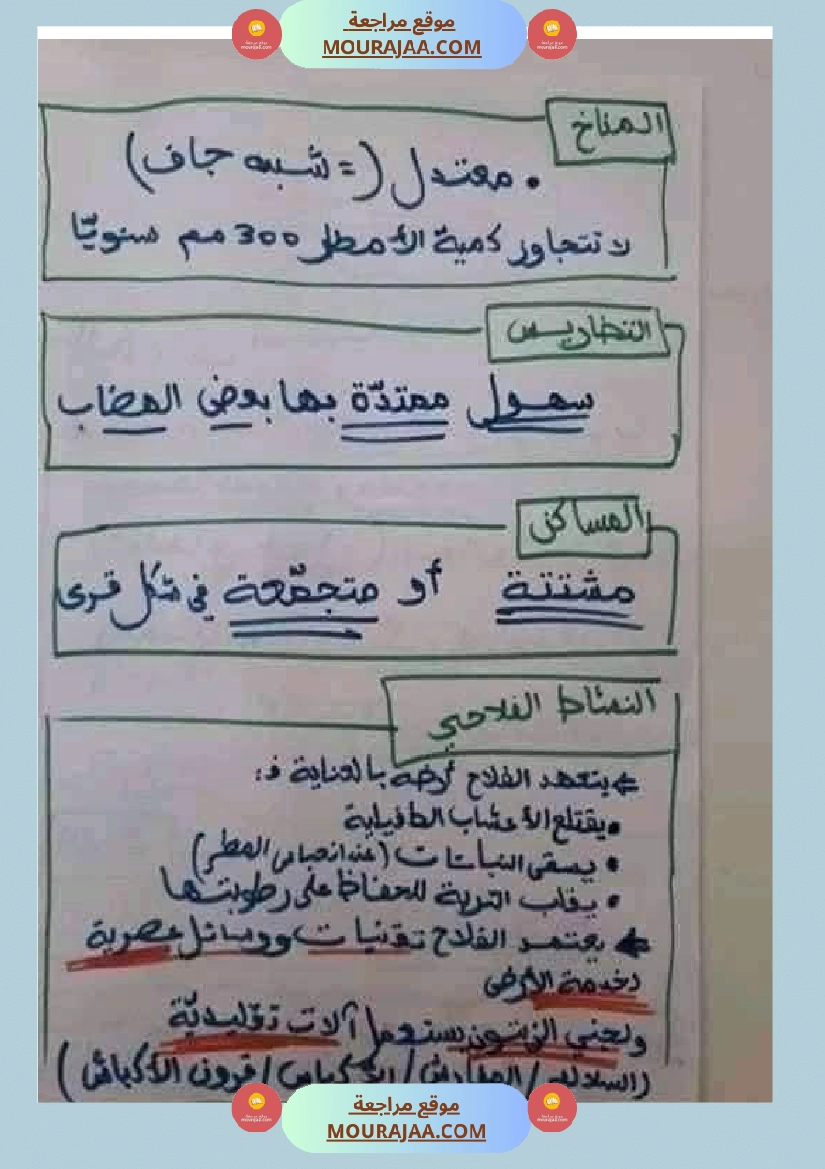 موقع مراجعة
MOURAJAA.COM
المناخ
• معتدل (= شبه جاف)
لا تتجاوز كمية الأمطار 300 مم سنويّا
التضاريس
سهول ممتدّة بها بعض الهضاب
المساكن
مشتتة أو متجمّعة في شكل قرى
النشاط الفلاحي
⇐ يتعهد الفلاح أرضه بالعناية فـ:
• يقتلع الأعشاب الطفيلية
• يسقي النباتات (عند انحباس المطر)
• يقلب التربة للحفاظ على رطوبتها
⇐ يعتمد الفلاح تقنيات ووسائل عصرية
لخدمة الأرض
ولجني الزيتون يستعمل آلات تقليديّة
(السلالم / المفارش / الأكياس / قرون الأكباش)
موقع مراجعة
MOURAJAA.COM